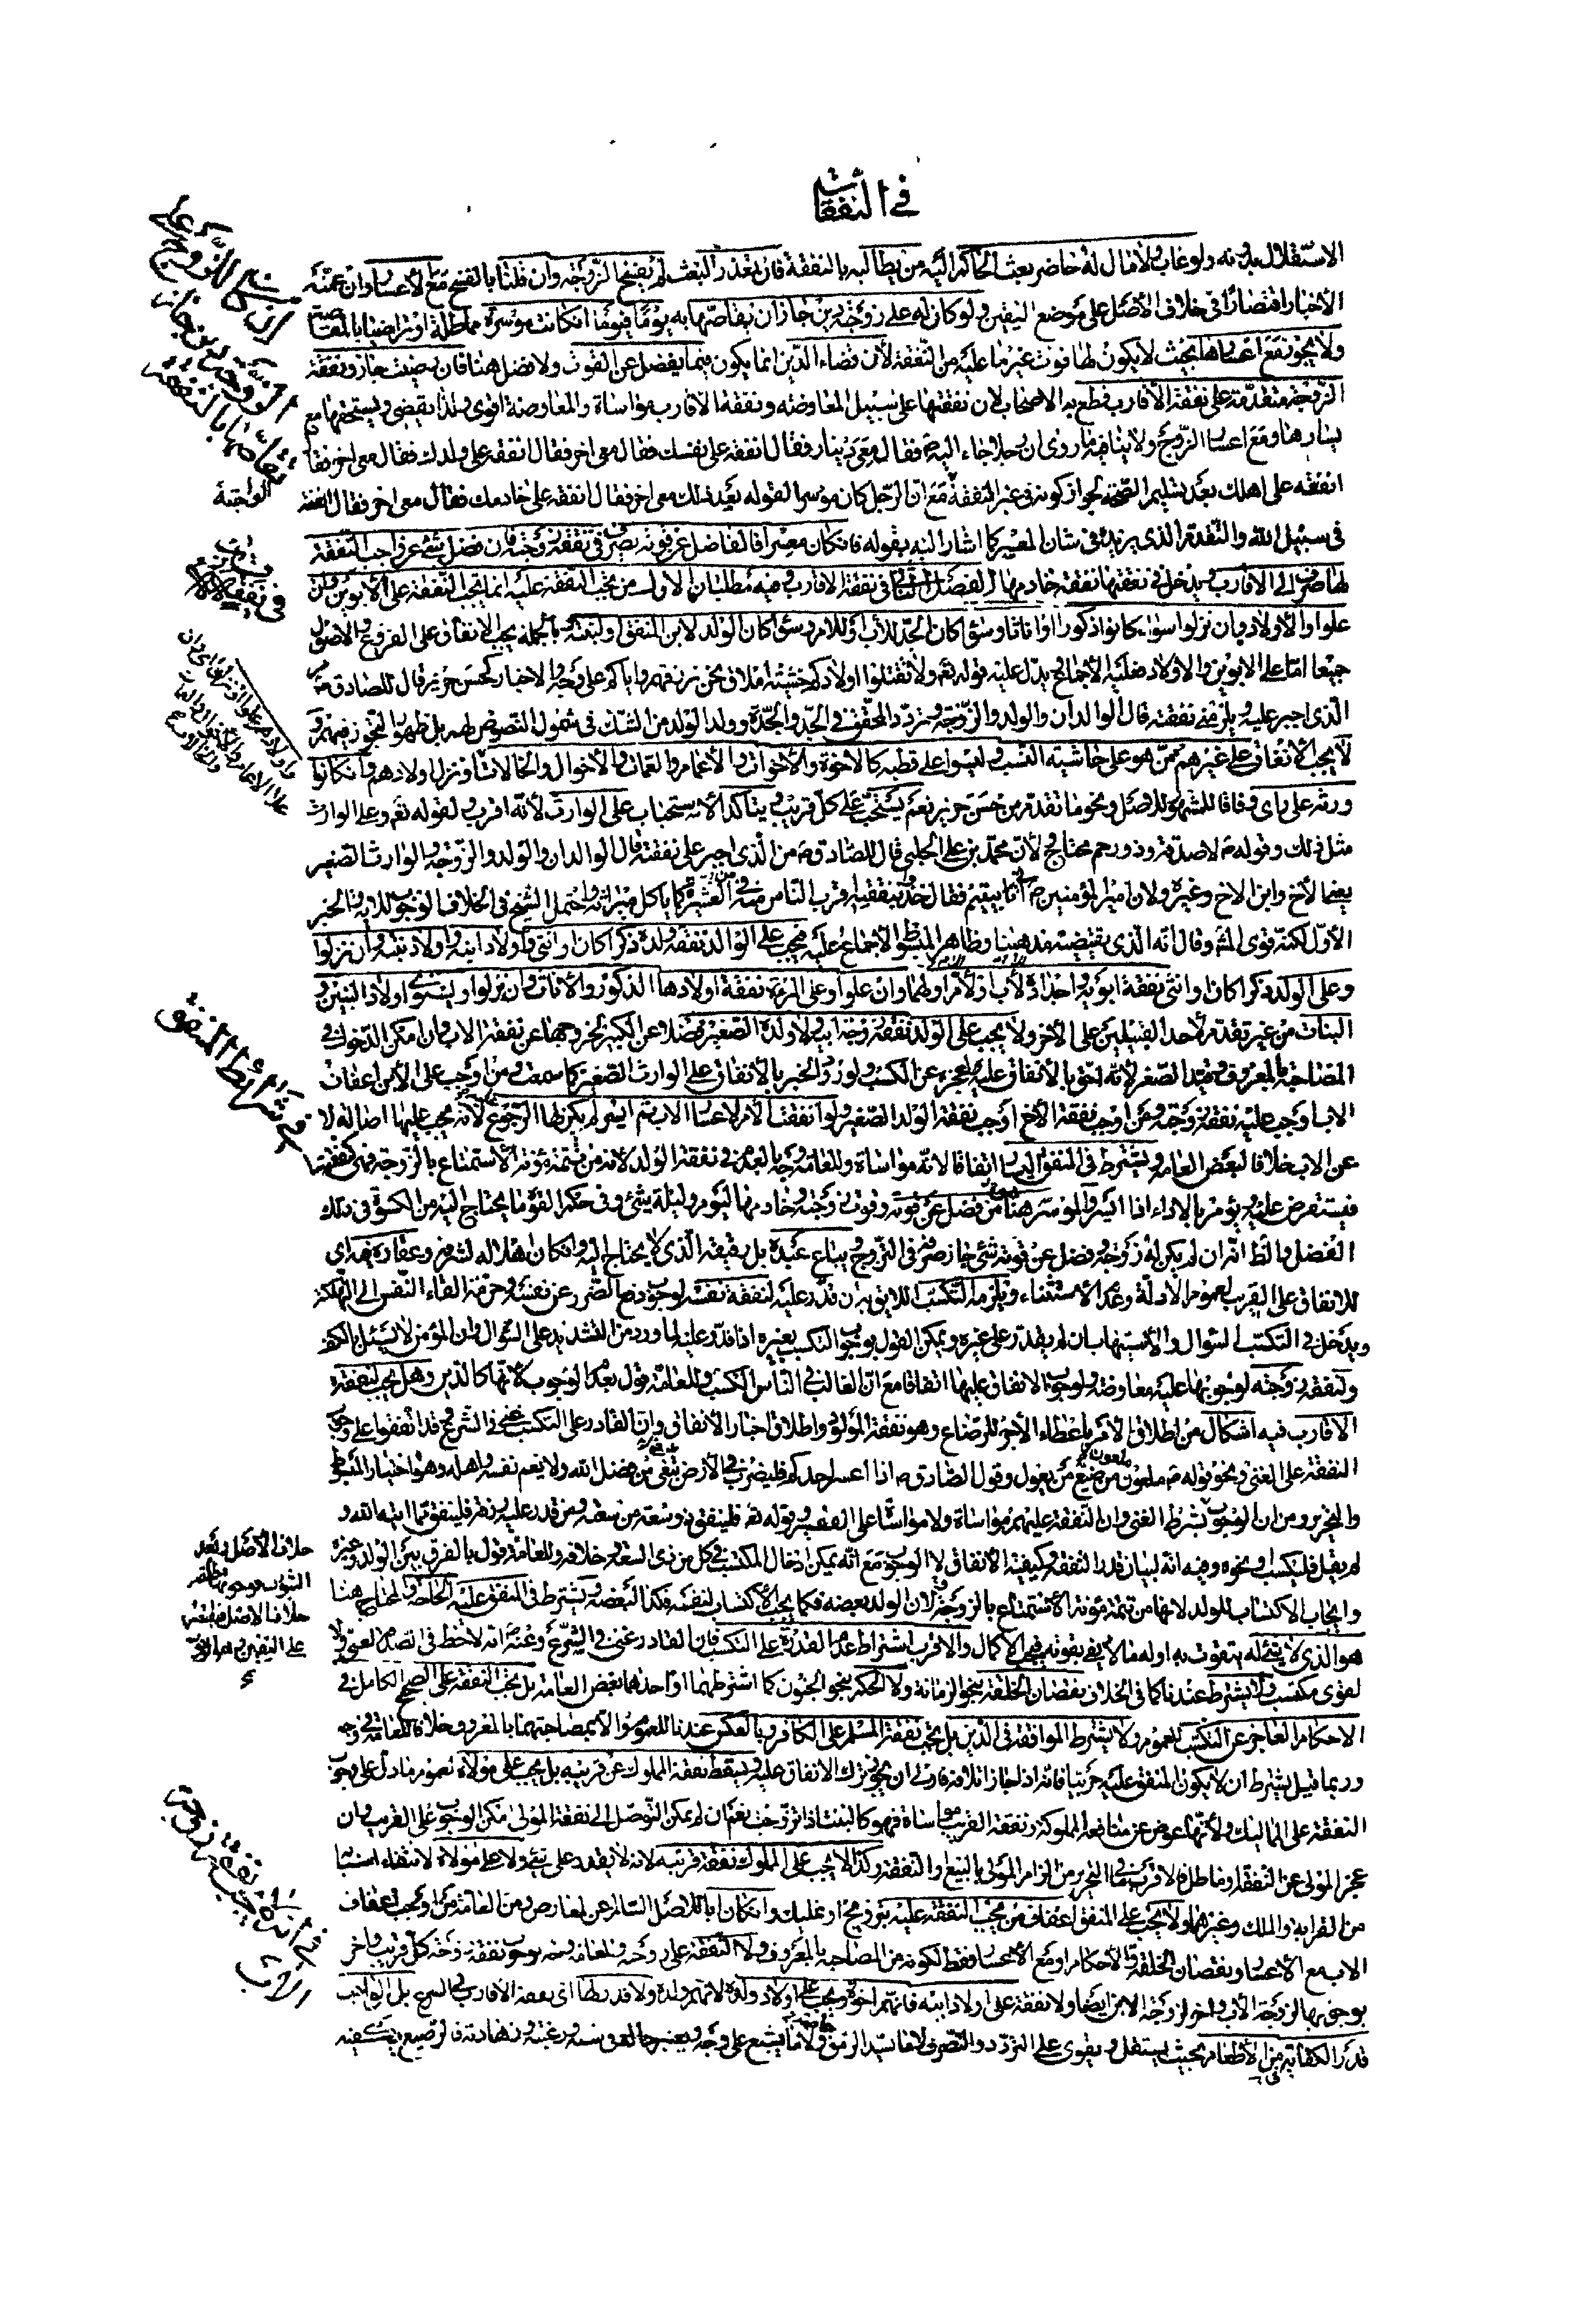 في النفقات
الاستقلال بدونه ولو غاب ولا مال له حاضر بعث الحاكم اليه من يطالبه بالنفقة فان تعذر البعث لم يفسخ الزوجة وان قلنا بالفسخ مع الاعسار وان عمته
الأخبار اقتصارا في خلاف الأصل على موضع اليقين ولو كان له على زوجته دين جاز ان يقاصها به يوما فيوما ان كانت موسرة مماطلة او ترا ضيا بالمقاصة
ولا يجوز مع اعسارها بحيث لا يكون لها قوت غير ما عليه من النفقة لأن قضاء الدين انما يكون فيما يفضل عن القوت ولا فضل هنا فان رضيت جاز ونفقة
الزوجة متقدمة على نفقة الأقارب قطع به الاصحاب لان نفقتها على سبيل المعاوضة ونفقة الاقارب مواساة والمعاوضة اقوى ولذا يقضى ويستحقها مع
يسارها ومع اعسار الزوج ولا ينافيه ما روى ان رجلا جاء اليه ص فقال معى دينار فقال انفقه على نفسك فقال معى اخر فقال انفقه على ولدك فقال معى اخر فقا
انفقه على اهلك بعد تسليم الصحة لجواز كونه في غير النفقة مع ان الرجل كان موسرا لقوله بعد ذلك معى اخر فقال انفقه على خادمك فقال معى اخر فقال انفقه
في سبيل الله والتقدم الذى يريد في شان المعسر كما اشار اليه بقوله فان كان معسرا فالفاضل عن قوته يصرف في نفقة زوجته فان فضل شئ عن واجب النفقة
لها صرف الى الاقارب ويدخل في نفقتها نفقة خادمها الفصل الثاني في نفقة الاقارب وفيه مطلبان الاول من يجب النفقة عليه انما تجب النفقة على الأبوين وان
علوا والاولاد وان نزلوا سواء كانوا ذكورا او اناثا وسواء كان الجد للأب او للام وسواء كان الولد لابن المنفق او لبنته وبالجملة يجب الانفاق على الفروع والاصول
جميعا امّا على الابوين والاولاد فعليه الاجماع يدل عليه قوله تعم ولا تقتلوا اولادكم خشية املاق نحن نرزقهم واياكم على وجه والاخبار كحسن حريز قال للصادق ع من
الذى اجبر عليه ويلزمني نفقته قال الوالدان والولد والزوجة وتردد المحقق في الجد والجدة وولد الولد من الشك في شمول النصوص لهم بل ظهور التجوز فيهم و
لا يجب الانفاق على غيرهم ممن هو على حاشية النسب وليسوا على قطبه كالاخوة والأخوات والأعمام والعمات والأخوال والخالات او نزلوا اولادهم وان كانوا
ورثه على راى وفاقا للمشهور للاصل ونحو ما تقدم من حسن حريز نعم يستحب على كل قريب ويتاكد الاستحباب على الوارث لأنه اقرب ولقوله تعم وعلى الوارث
مثل ذلك وقوله ص لا صدقة وذو رحم محتاج ولأن محمد بن على الحلبى قال للصادق ع من الذى اجبر على نفقته قال الوالدان والولد والزوجة والوارث الصغير
يعنى الأخ وابن الاخ وغيره ولان امير المؤمنين ع اتى بيتيم فقال خذوا بنفقته اقرب الناس منه في العشيرة كما ياكل ميراثه واحتمل الشيخ في الخلاف الوجوب للاية والخبر
الأول لكنه قوى الثم وقال انه الذى يقتضيه مذهبنا وظاهر المبسوط الاجماع عليه فيجب على الوالد نفقة ولده ذكرا كان او انثى واولاد ابنه واولاد بنته وان نزلوا
وعلى الولد ذكرا كان او انثى نفقة ابويه واجداده لأب او لام او لهما وان علوا وعلى المراة نفقة اولادها الذكور والاناث وان نزلوا ويستوى اولاد البنين و
البنات من غير تقدم لأحد القبيلين على الأخر ولا يجب على الولد نفقة زوجة ابيه ولا ولده الصغير فضلا عن الكبير لخروجهما عن نفقة الاب وان امكن الدخول في
المصاحبة بالمعروف وقيد الصغر لانه احق بالأنفاق عليه لعجزه عن الكسب ولورود الخبر بالأنفاق على الوارث الصغير كما سمعت ومن اوجب على الأبن اعفاف
الاب اوجب عليه نفقة زوجته ومن اوجب نفقة الأخ اوجب نفقة الولد الصغير ولو انفقت الأم لاعسار الاب ثم ايسر لم يكن لها الرجوع لانه يجب عليها اصالة لا
عن الاب خلافا لبعض العامة ويشترط في المنفق اليسار اتفاقا لانه مواساة وللعامة وجه بالعدم في نفقة الولد لانه من تتمة مؤنة الأستمتاع بالزوجة فهى كنفقتها
فيستقرض عليه ويؤمر بالاداء اذا ايسر والموسر هنا من فضل عن قوته وقوت زوجته وخادمها ليوم وليلة شئ وفي حكم القوت ما يحتاج اليه من الكسوة في ذلك
الفصل والظ انه ان لم يكن له زوجة وفضل عن قوته شئ جاز صرفه في التزويج ويباع عبده بل رقيقه الذى لا يحتاج اليه وان كان اهلا له لشرفه وعقاره فيه اى
للانفاق على القريب لعموم الأدلة وعدم الاستثناء ويلزمه التكسب اللايق به ان قدر عليه لنفقة نفسه لوجوب دفع الضرر عن نفسه وحرمة القاء النفس الى التهلكة
ويدخل في التكسب السئوال والاستيهاب ان لم يقدر على غيره ويمكن القول بوجوب التكسب بغيره اذا قدر عليه لما ورد من التشديد على السئوال وان المؤمن لا يسئل بالكف
ولنفقة زوجته لوجوبها عليه معاوضة ولوجوب الانفاق عليها اتفاقا مع ان الغالب في الناس الكسب وللعامة قول بعدم الوجوب لانها كالدين وهل يجب لنفقة
الاقارب فيه اشكال من اطلاق الأمر باعطاء الأجور للرضاع وهو نفقة المولود واطلاق اخبار الأنفاق وان القادر على التكسب غنى في الشرع فقد اتفقوا على وجوب
النفقة على الغنى ونحو قوله ص ملعون من ضيع من يعول وقول الصادق ع اذا اعسر احدكم فليضرب في الأرض يبتغى من فضل الله ولا يغم نفسه واهله وهو اختيار المبسوط
والتحرير ومن ان الوجوب بشرط الغنى وان النفقة عليهم مواساة ولا مواساة على الفقير وقوله تعم فلينفق ذو سعة من سعته ومن قدر عليه رزقه فلينفق مما اتيه الله و
لم يقل فليكسب ونحوه وفيه انه لبيان قدر النفقة وكيفية الأنفاق لا الوجوب مع انه يمكن ادخال المكتسب في كل من ذى السعة وخلافه وللعامة قول بالفرق بين الولد وغيره
وايجاب الاكتساب للولد لانها من تتمة مؤنة الأستمتاع بالزوجة ولان الولد بعضه فكما يجب الاكتساب لنفسه فكذا لبعضه ويشترط في المنفق عليه الحاجة والمحتاج هنا
هو الذى لا شئ له يتقوت به او له ما لا يفى بقوته فيجب الاكمال والاقرب اشتراط عدم القدرة على التكسب فان القادر غنى في الشرع وعنه ص انه لا حظ في الصدقة لغنى ولا
لقوى مكتسب ولا يشترط عندنا كما في الخلاف نقصان الخلقة بنحو الزمانة ولا الحكم بنحو الجنون كما اشترطهما او احدهما بعض العامة بل تجب النفقة على الصحيح الكامل في
الاحكام العاجز عن التكسب للعموم ولا يشترط الموافقة في الدين بل تجب نفقة المسلم على الكافر وبالعكس عندنا للعموم والأمر بمصاحبتهما بالمعروف خلافا للعامة في وجه
وربما قيل يشترط ان لا يكون المنفق عليه حربيا فانه اذا جاز اتلافه فاولى ان يجوز ترك الانفاق عليه ويسقط نفقة المملوك عن قريبه بل يجب على مولاه لعموم ما دل على وجوب
النفقة على المماليك ولأنها عوض عن منافعه المملوكة ونفقة القريب مواساة فهو كالبنت اذا تزوجت نعم ان لم يمكن التوصل الى نفقة المولى امكن الوجوب على القريب وان
عجز المولى عن النفقة او ماطل فالاقرب ما في التحرير من الزام المولى بالبيع او النفقة وكذا لا يجب على المملوك نفقة قريبه لانه لا يقدر على شئ ولا على مولاه لانتفاء اسبابها
من القرابة والملك وغيرهما ولا يجب على المنفق اعفاف من تجب النفقة عليه بتزويج او تمليك وان كان ابا للاصل السالم عن المعارض ومن العامة من اوجب اعفاف
الاب مع الأعسار ونقصان الخلقة والأحكام او مع الأعسار فقط لكونه من المصاحبة بالمعروف ولا النفقة على زوجته وللعامة وجه بوجوب نفقة زوجة كل قريب واخر
بوجوبها لزوجة الأب واخر لزوجة الابن ايضا ولا نفقة على اولاد ابيه فانهم اخوة ويجب على اولاد ولده لانهم ولده ولا قدر لها اى نفقة الأقارب في الشرع بل الواجب
قدر الكفاية من الاطعام بحيث يستقل ويقوى على التردد والتصرف لا ما يسد الرمق ولا ما يشبع على وجه ويعتبر حاله في سنه ورغبته وزهادته فالرضيع يكفيه
ان كان للزوج على
الزوجة دين جاز
تقاصها بالنفقة
الواجبة
في نفقة الاقارب
في شرائط المنفق
خلاف الأصل
في انه لا يجب نفقة زوجة
الاب